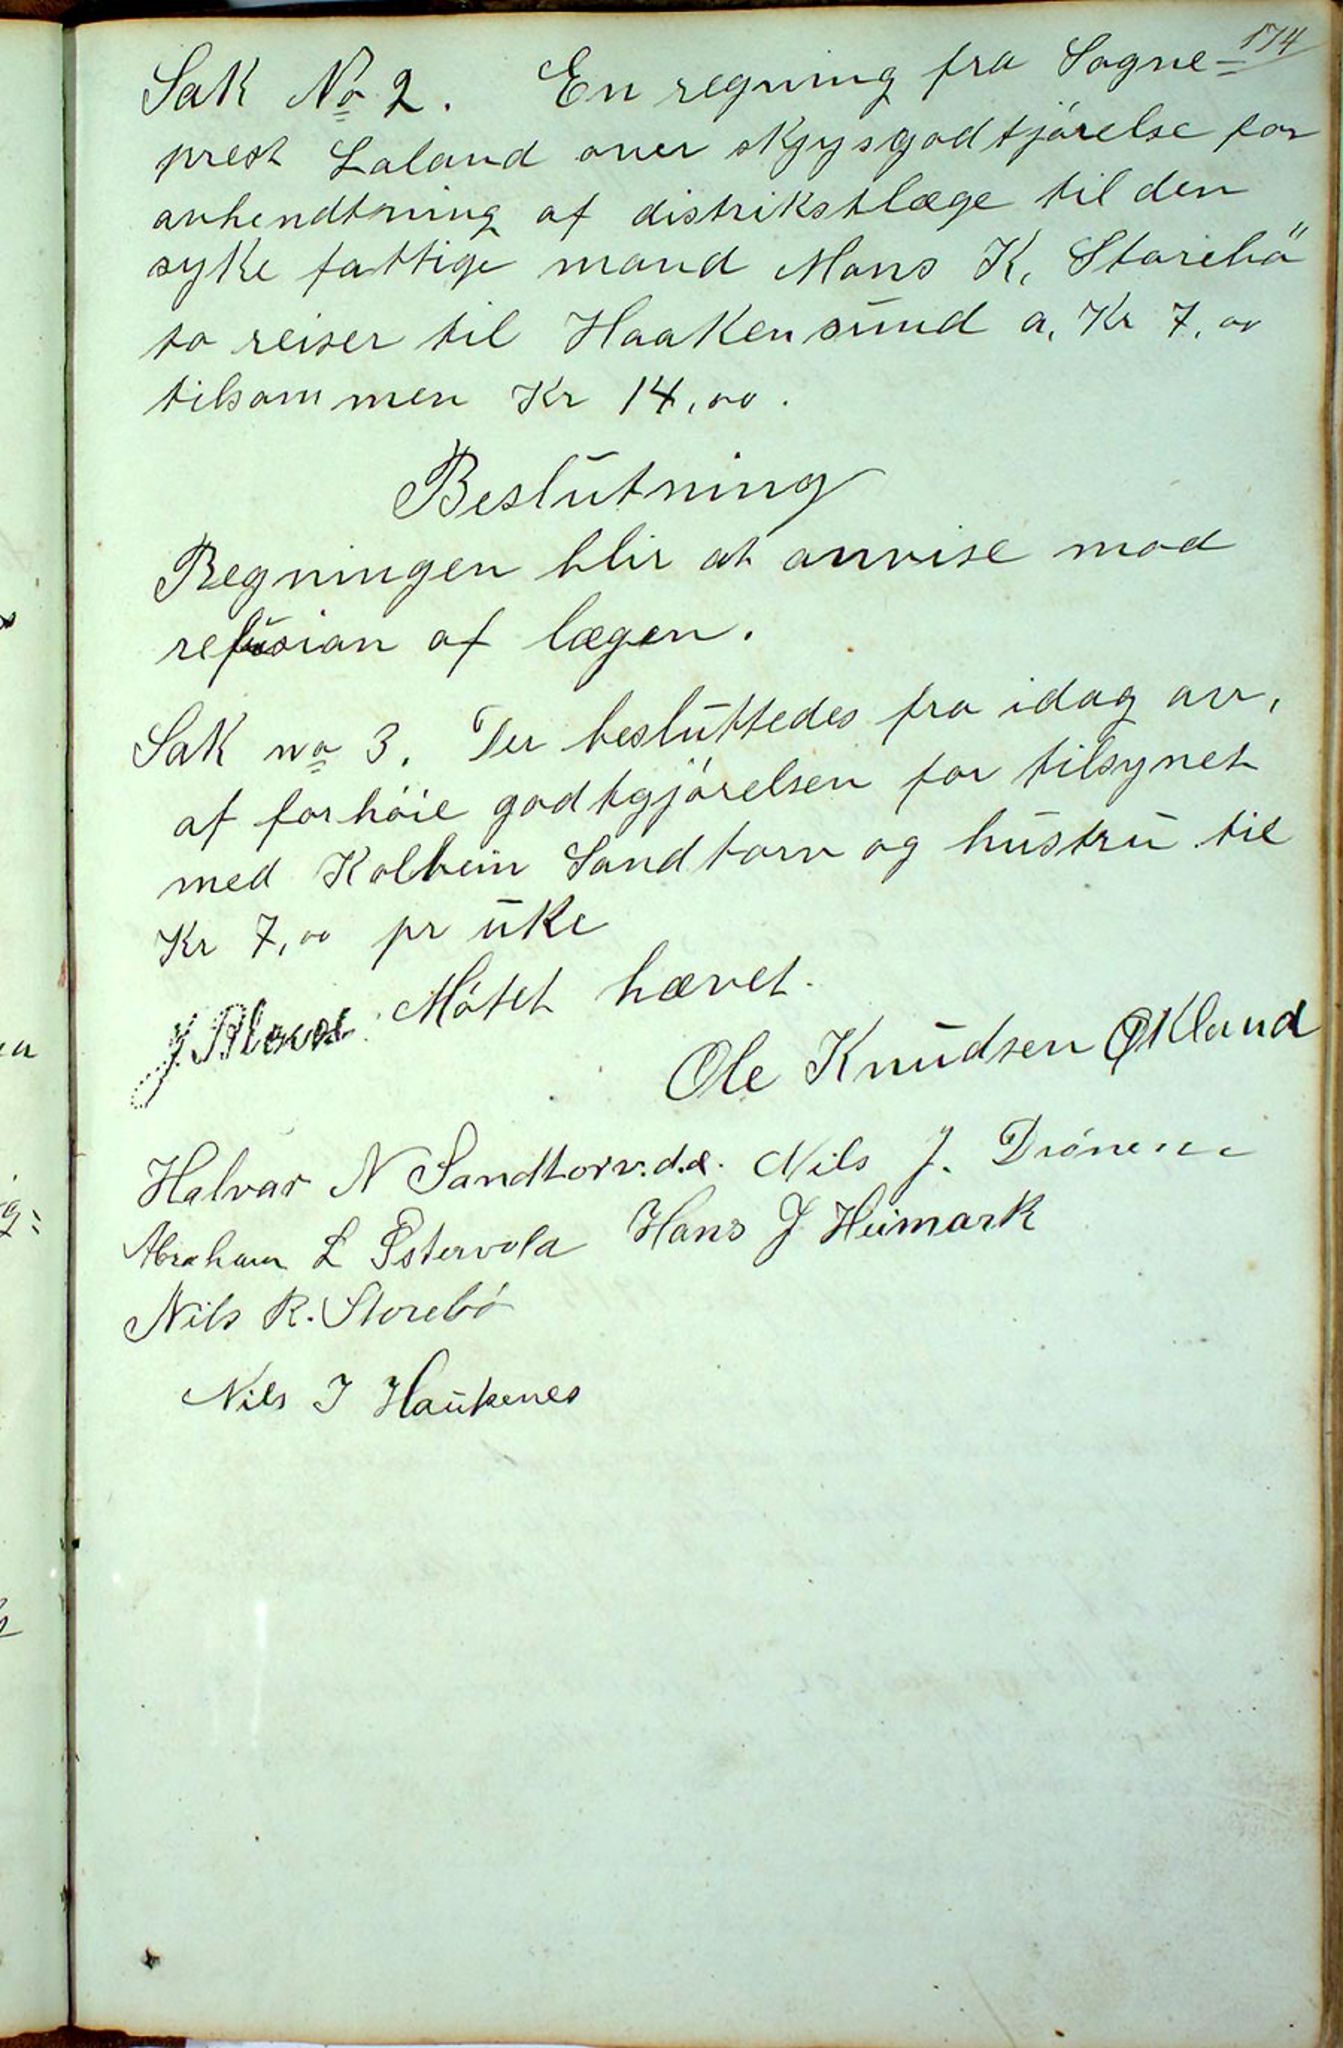 174
Sak No 2. En regning fra Sogne-
prest Laland over skysgodtjörelse for
avhendtning af distrikstlæge til den
syke fattige mand Mons K. Storebö
to reiser til Haakensund a. Kr 7,00
tilsammen Kr 14,00.
Beslutning
Regningen blir at anvise mod
refusion af lægen.
Sak no 3. Der besluttedes fra idag av,
af forhöie godtgjörelsen for tilsynet
med Kolbein Sandtorv og hustru til
Kr 7,00 pr uke
Mötet hævet.
Ole Knudsen Økland
Halvar N Sandtorv. d.e. Nils J. Drönen
Abraham L Østervold Hans J Heimark
Nils R. Storebö
Nils J Haukenes